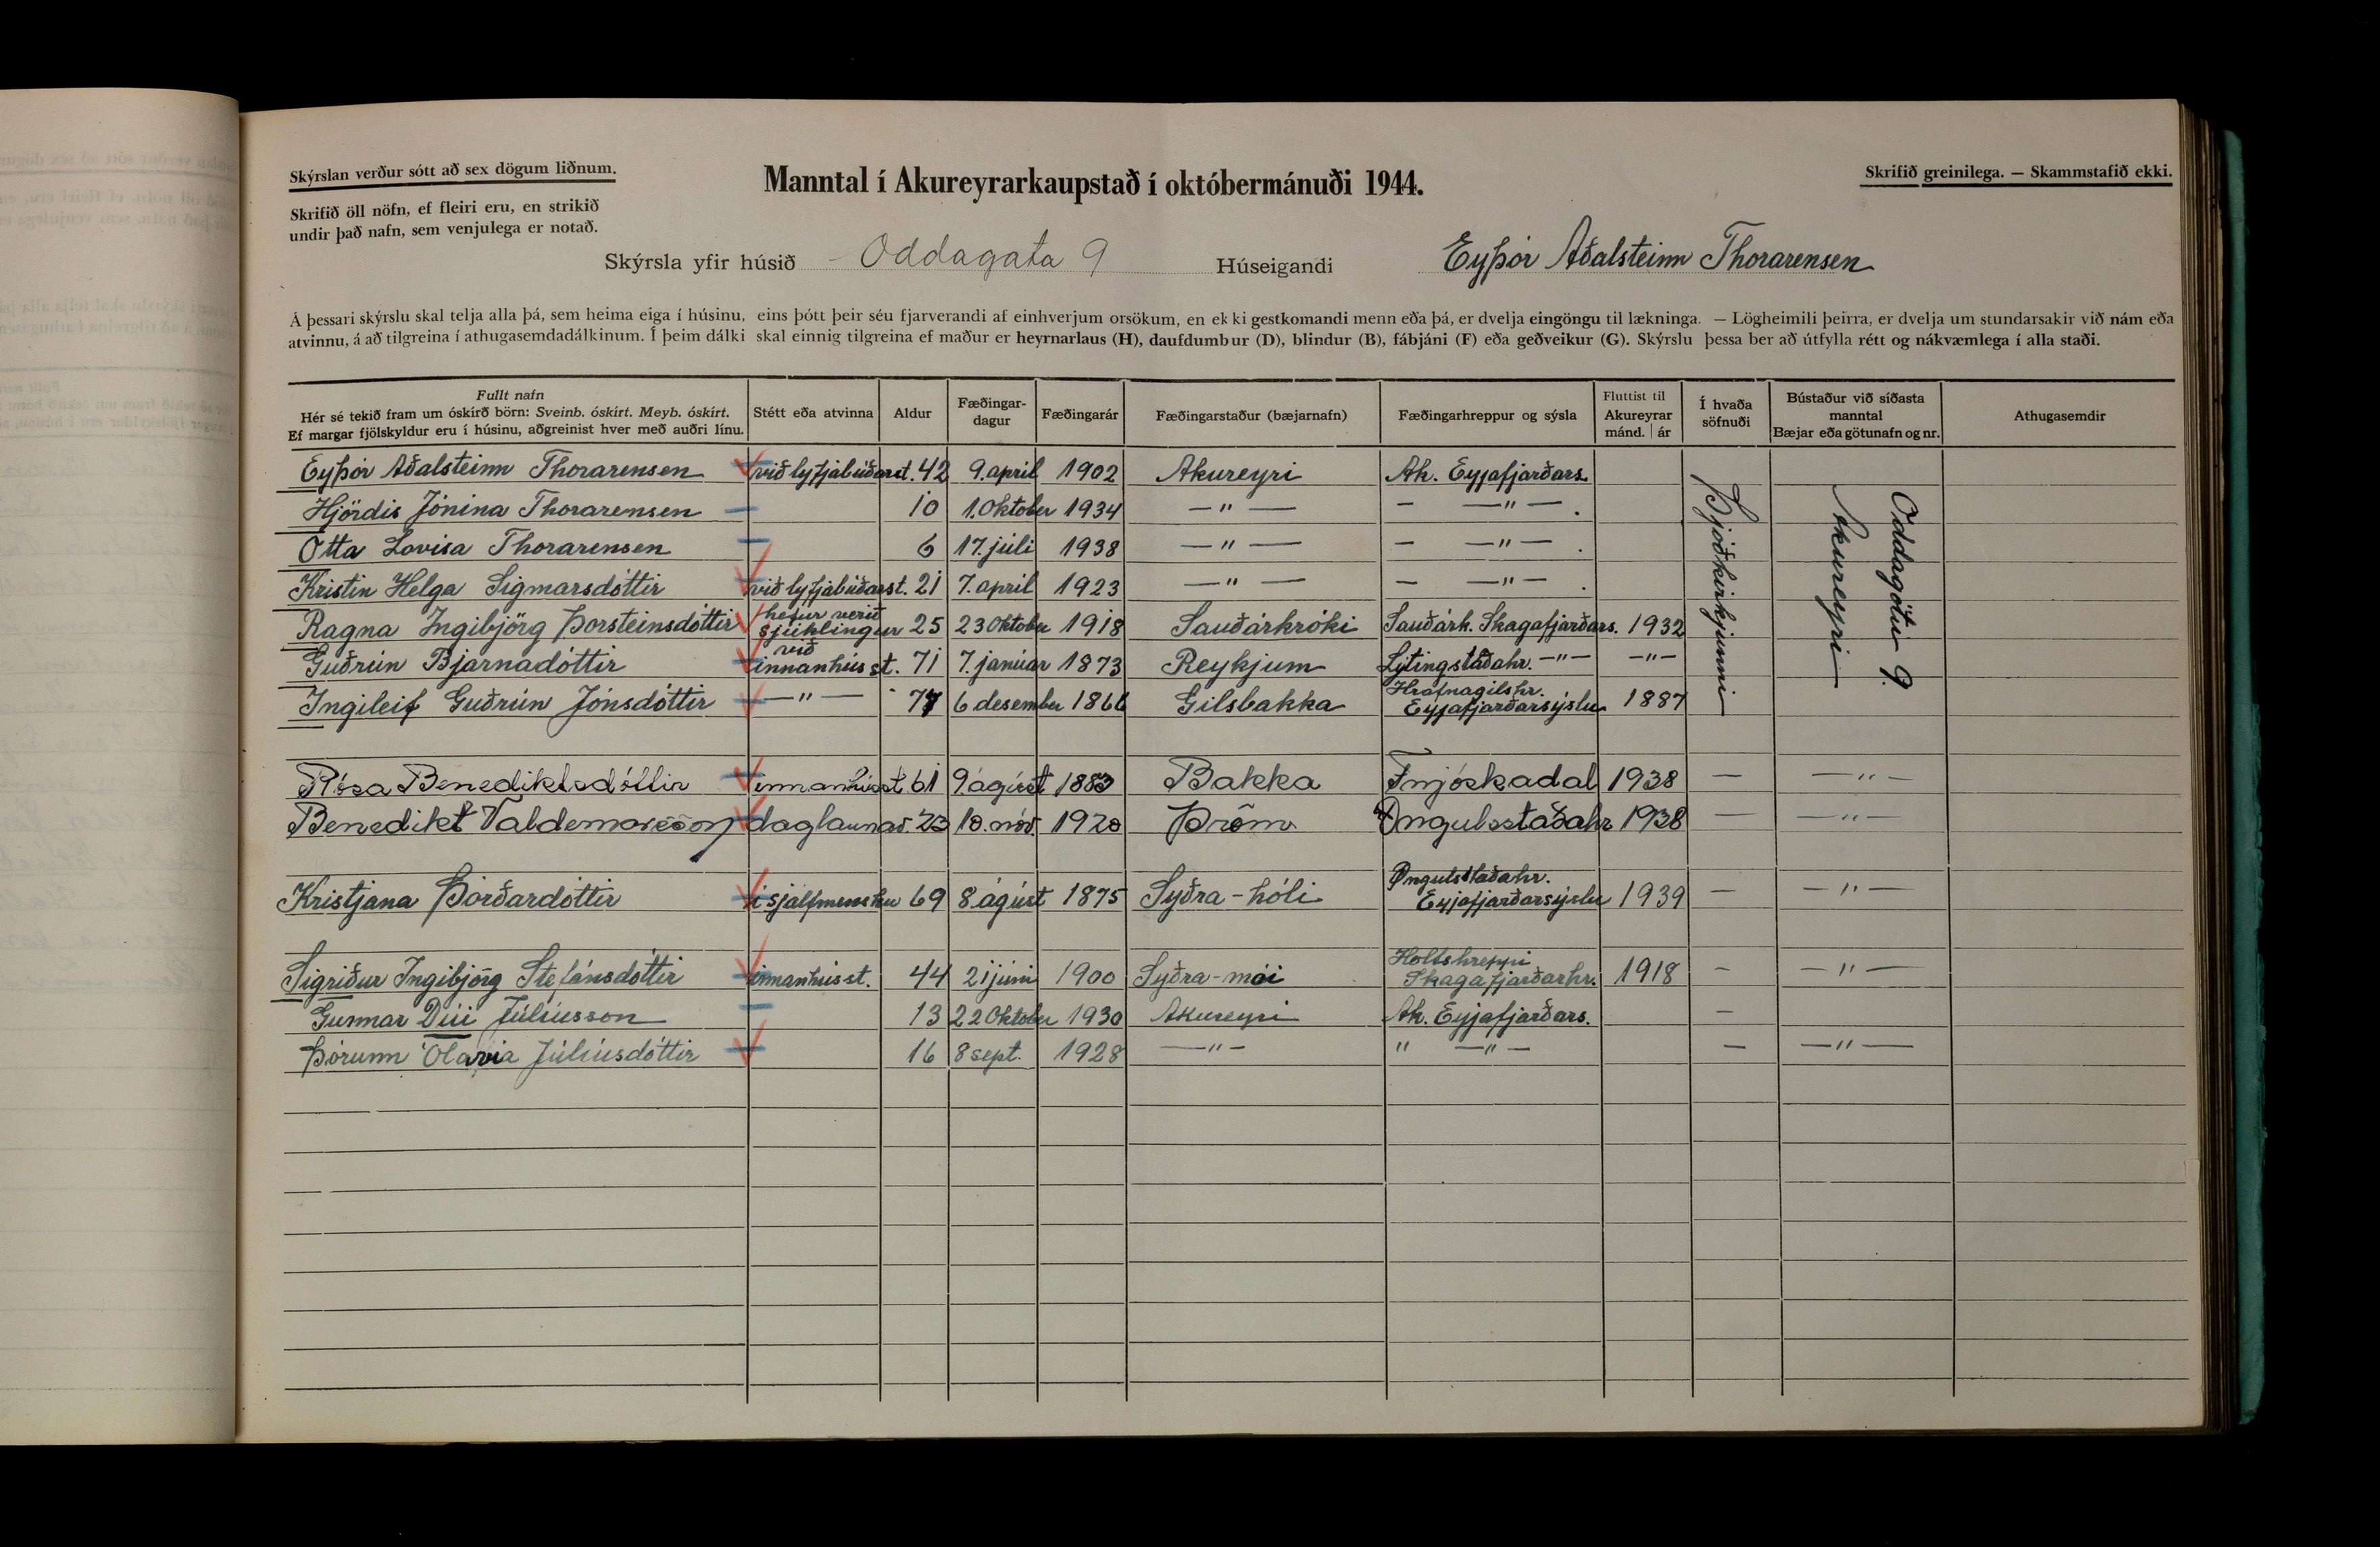 Skýrslan verður sótt að sex dögum liðnum.
Manntal í Akureyrarkaupstað í októbermánuði 1944.
Skrifið greinilega. — Skammstafið ekki.
Skrifið öll nöfn, ef fleiri eru, en strikið
undir það nafn, sem venjulega er notað.
Skýrsla yfir húsið Oddagata 9 Húseigandi Eyþór Aðalsteinn Thorarensen
Á þessari skýrslu skal telja alla þá, sem heima eiga í húsinu, eins þótt þeir séu fjarverandi af einhverjum orsökum, en ekki gestkomandi menn eða þá, er dvelja eingöngu til lækninga. — Lögheimili þeirra, er dvelja um stundarsakir við nám eða
atvinnu, á að tilgreina í athugasemdadálkinum. Í þeim dálki skal einnig tilgreina ef maður er heyrnarlaus (H), daufdumbur (D), blindur (B), fábjáni (F) eða geðveikur (G). Skýrslu þessa ber að útfylla rétt og nákvæmlega í alla staði.
Fullt nafn
Hér sé tekið fram um óskírð börn: Sveinb. óskírt. Meyb. óskírt.
Ef margar fjölskyldur eru í húsinu, aðgreinist hver með auðri línu.
Stétt eða atvinna
Aldur
Fæðingar-
dagur
Fæðingarár
Fæðingarstaður (bæjarnafn)
Fæðingarhreppur og sýsla
Fluttist til
Akureyrar
mánd. | ár
Í hvaða
söfnuði
Bústaður við síðasta
manntal
Bæjar eða götunafn og nr.
Athugasemdir
Eyþór Aðalsteinn Thorarensen við lyfjabúðarst. 42 9. apríl 1902 Akureyri Ak. Eyjafjarðars.
Hjördis Jónina Thorarensen 10 1. Oktober 1934 — " — — — " — .
Otta Lovisa Thorarensen 6 17. júli 1938 — " — — — " — .
Kristin Helga Sigmarsdóttir við lyfjabúðarst. 21 7. april 1923 — " — — — " — .
Ragna Ingibjörg Þorsteinsdóttir hefur verið sjúklingur 25 23 Oktober 1918 Sauðárkróki Sauðárk. Skagafjarðars. 1932
Guðrún Bjarnadóttir við innanhússt. 71 7. janúar 1873 Reykjum Lýtingstaðahr. — " — — " —
Ingileif Guðrún Jónsdóttir — " — 77 6 desember 1866 Gilsbakka Hrafnagilshr. Eyjafjarðarsýslu 1887
Þjóðkirkjunni
Oddagötu 9.
Akureyri
Rósa Benediktsdóttir innanhússt. 61 9. ágúst 1883 Bakka Fnjóskadal 1938 — — " —
Benedikt Valdemarsson daglaunav. 23 10. nóv. 1920 Þröm Öngulsstaðahr 1938 — — " —
Kristjana Þórðardóttir í sjálfmensku 69 8. ágúst 1875 Syðra-hóli Öngulstaðahr. Eyjafjarðarsýslu 1939 — — " —
Sigriður Ingibjörg Stefánsdóttir innanhússt. 44 21 júni 1900 Syðra-mói Holtshreppi Skagafjarðarhr. 1918 — — " —
Gunnar Dúi Júliusson 13 22 Oktober 1930 Akureyri Ak. Eyjafjarðars. —
Þórunn Ólavia Júliúsdóttir 16 8 sept. 1928 — " — " — " — — — " —